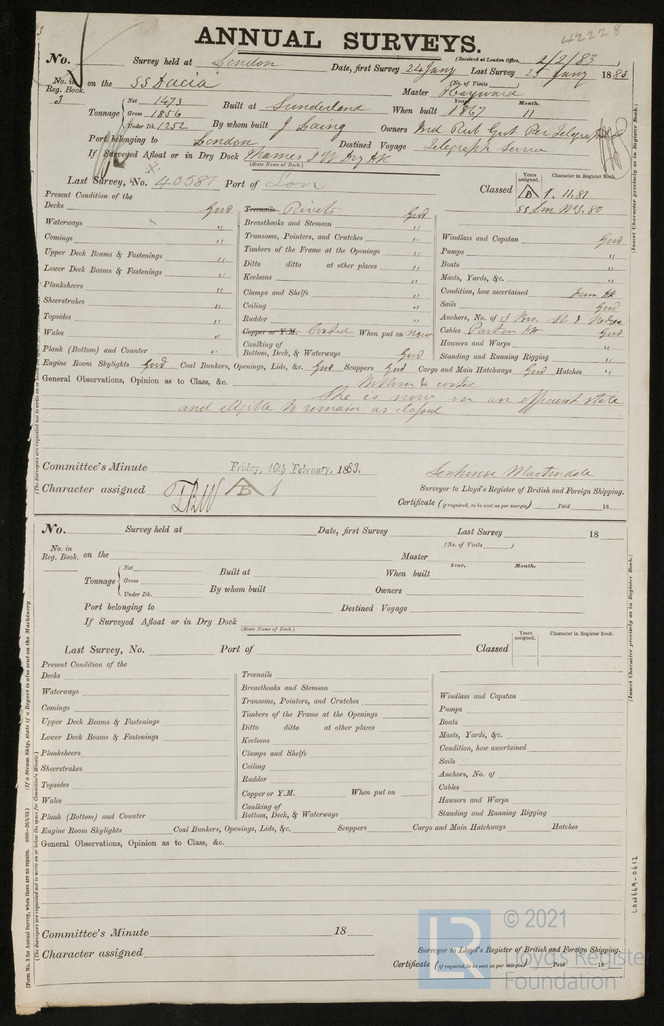 42228
ANNUAL SURVEYS.
(Received at London Office, 2/2/83
No. Survey held at London Date, first Survey 24 Jany Last Survey 25 Jany 1883
(No. of Visits )
No. in Reg. Book. 3 on the SS Dacia Master Hayward
Tonnage Net 1473 Gross 1856 Under Dk. 1252 Built at Sunderland When built Year, 1867 Month. 11
By whom built J Laing Owners
Port belonging to London Destined Voyage Telegraph Service
If Surveyed Afloat or in Dry Dock Thames
(State Name of Dock.)
Last Survey, No. 40581 Port of Lon Classed Years assigned. Character in Register Book.
Present Condition of the
Decks Good Treenails Rivets Good
Waterways " Breasthooks and Stemson " Windlass and Capstan Good
Comings " Transoms, Pointers, and Crutches " Pumps "
Upper Deck Beams & Fastenings " Timbers of the Frame at the Openings " Boats "
Lower Deck Beams & Fastenings " Ditto ditto at other places " Masts, Yards, &c. "
Planksheers " Keelsons " Condition, how ascertained from Dk
Sheerstrakes " Clamps and Shelfs " Sails Good
Topsides " Ceiling " Anchors, No. of
Wales " Rudder " Cables Good
Plank (Bottom) and Counter " Copper or Y.M. Coated When put on now Hawsers and Warps "
Caulking of Bottom, Deck, & Waterways Good Standing and Running Rigging "
Engine Room Skylights Good Coal Bunkers, Openings, Lids, &c. Good Scuppers Good Cargo and Main Hatchways Good Hatches "
General Observations, Opinion as to Class, &c. Bottom & coated
She is now in an efficient state
and eligible to remain as classed
Committee's Minute Friday, 16th February, 1883. Senhouse Martindale
Character assigned Surveyor to Lloyd's Register of British and Foreign Shipping.
Certificate (if required, to be sent as per margin) Paid 18
No. Survey held at Date, first Survey Last Survey 18
(No. of Visits )
No. in Reg. Book. on the Master
Tonnage Net Gross Under Dk. Built at When built Year, Month.
By whom built Owners
Port belonging to Destined Voyage
If Surveyed Afloat or in Dry Dock
(State Name of Dock.)
Last Survey, No. Port of Classed Years assigned. Character in Register Book.
Present Condition of the
Decks Treenails
Waterways Breasthooks and Stemson Windlass and Capstan
Comings Transoms, Pointers, and Crutches Pumps
Upper Deck Beams & Fastenings Timbers of the Frame at the Openings Boats
Lower Deck Beams & Fastenings Ditto ditto at other places Masts, Yards, &c.
Planksheers Keelsons Condition, how ascertained
Sheerstrakes Clamps and Shelfs Sails
Topsides Ceiling Anchors, No. of
Wales Rudder Cables
Plank (Bottom) and Counter Copper or Y.M. When put on Hawsers and Warps
Caulking of Bottom, Deck, & Waterways Standing and Running Rigging
Engine Room Skylights Coal Bunkers, Openings, Lids, &c. Scuppers Cargo and Main Hatchways Hatches
General Observations, Opinion as to Class, &c.
Committee's Minute 18
Character assigned Surveyor to Lloyd's Register of British and Foreign Shipping.
Certificate (if required, to be sent as per margin) Paid 18
(Insert Character precisely as in Register Book.)
(Insert Character precisely as in Register Book.)
LON869-0612
LR © 2021
Lloyd's Register
Foundation